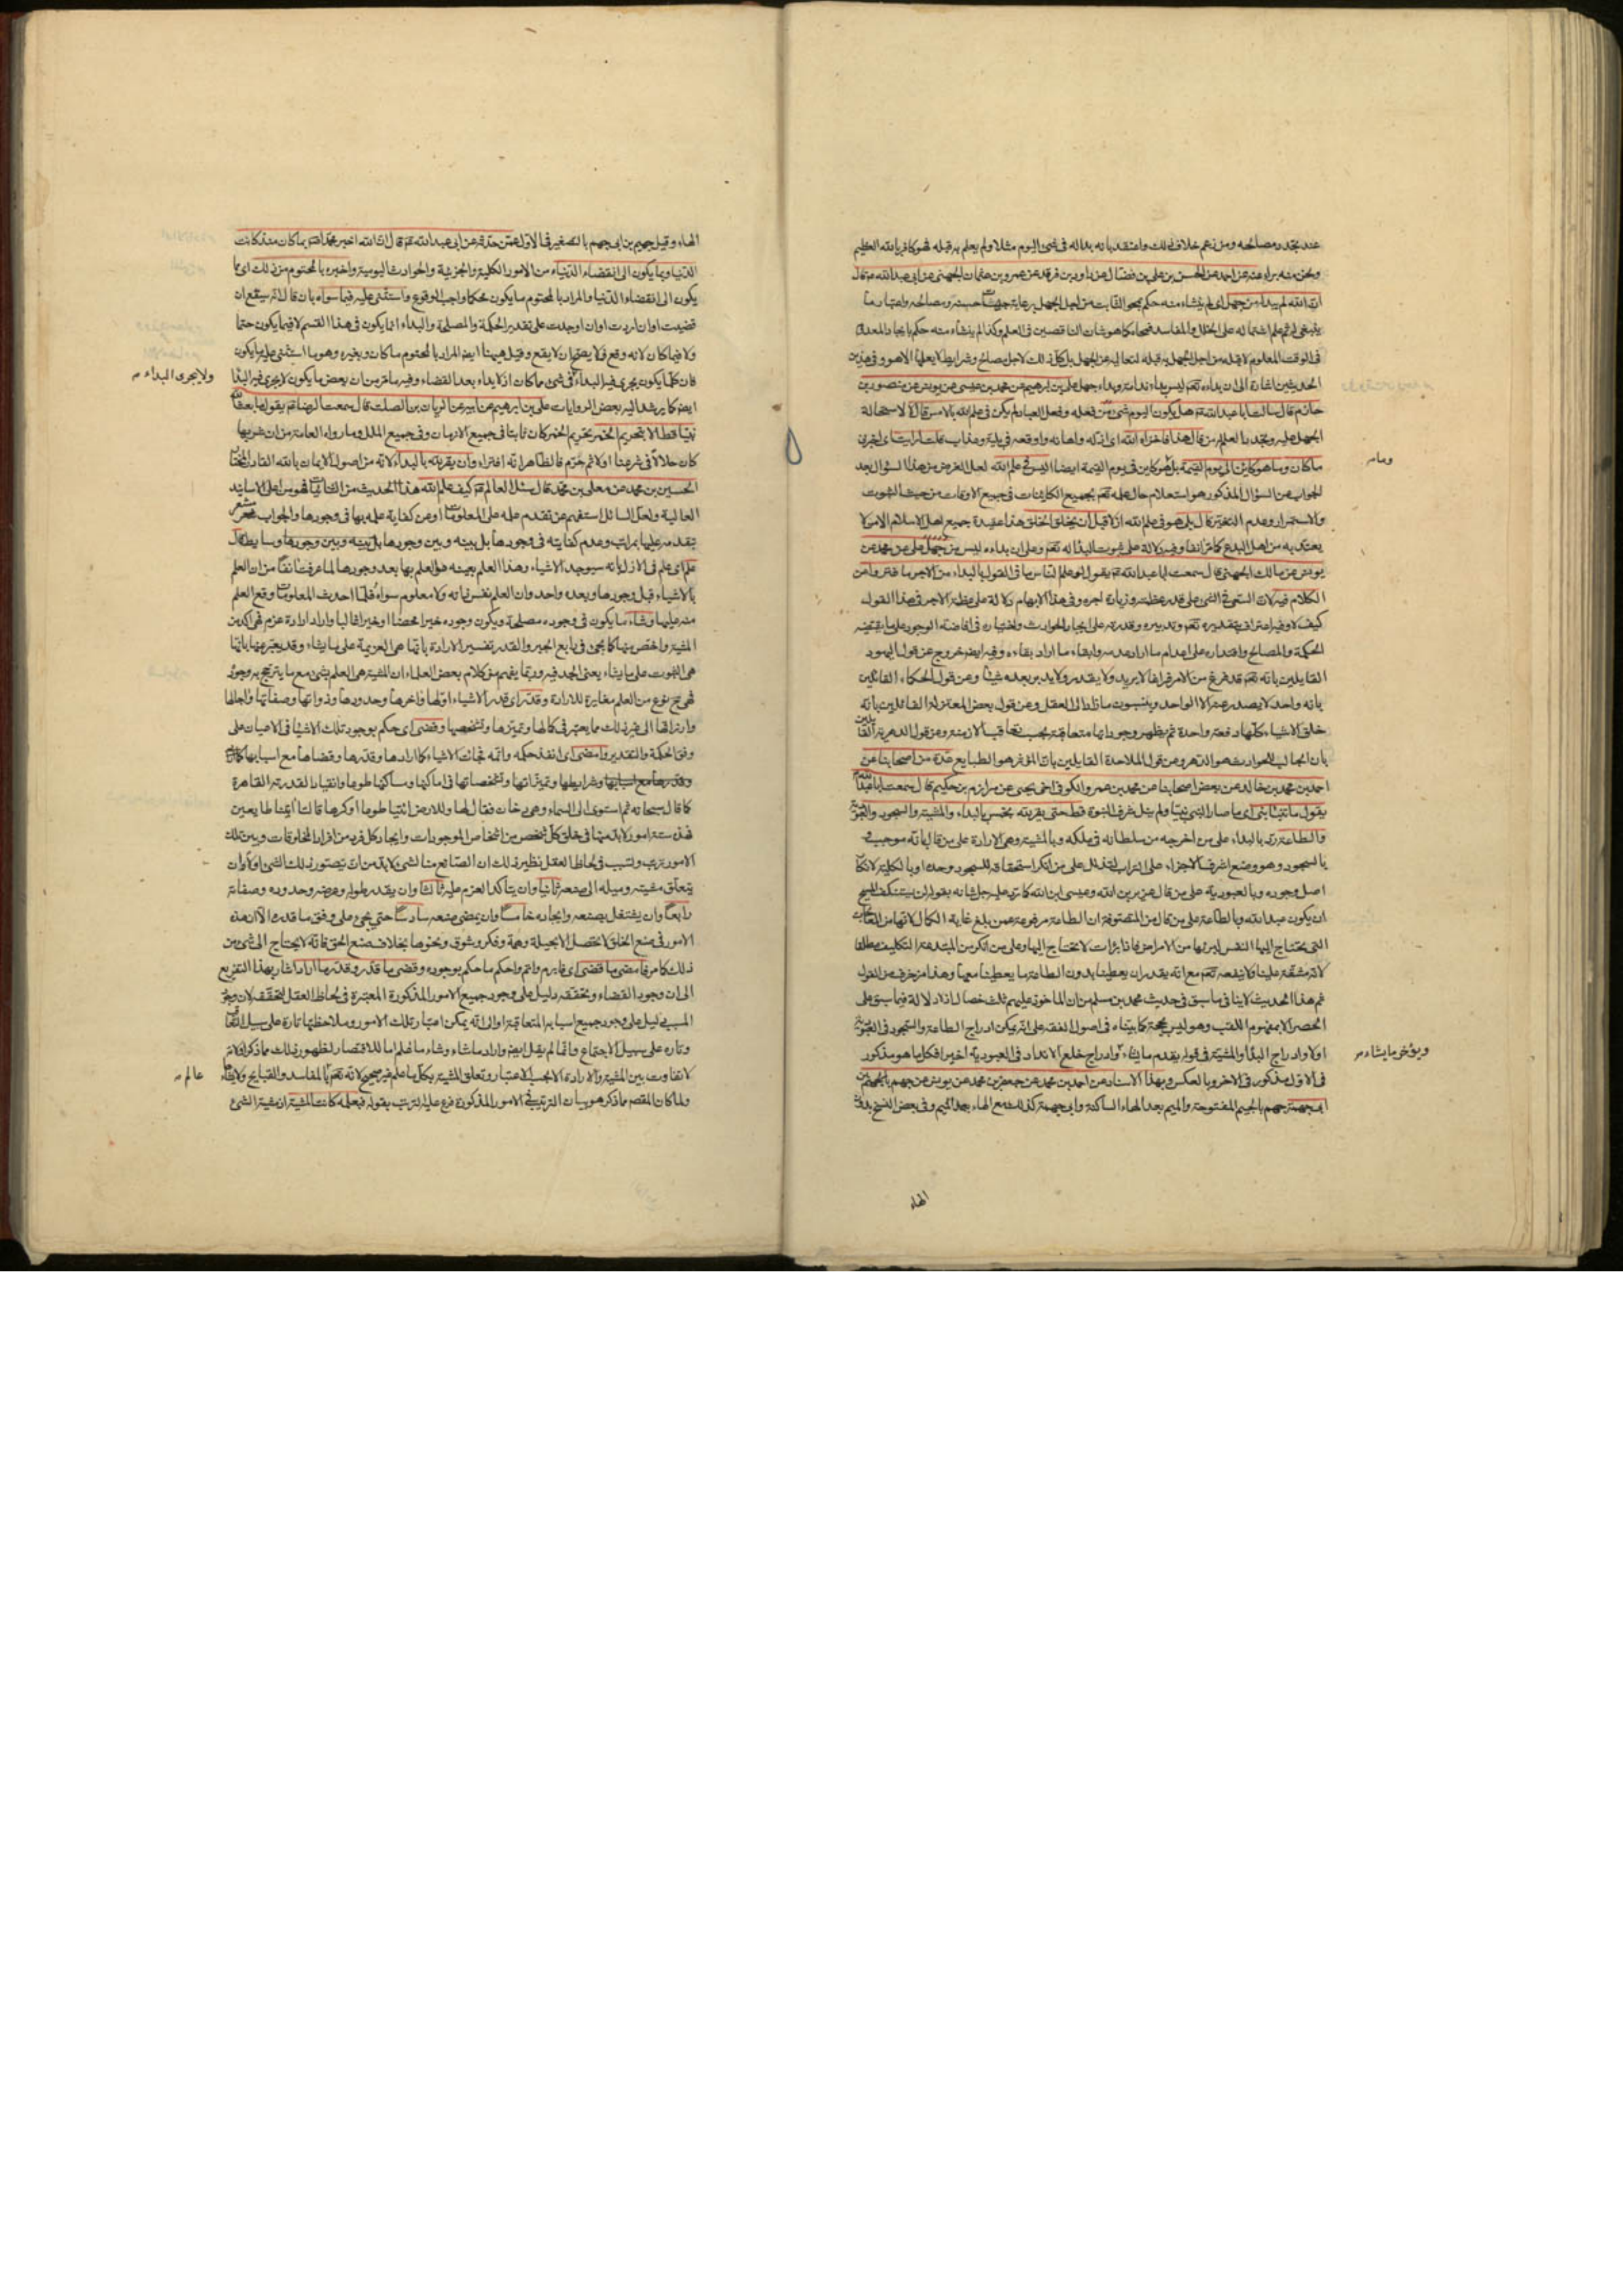 عند تجدد مصالحه ومن زعم خلاف ذلك واعتقد بانه بداله فى شئ اليوم مثلا ولم يعلم به قبله فهو كافر بالله العظيم
ونحن منه براء عنه عن احمد عن الحسن بن على بن فضال عن داود بن فرقد عن عمرو بن عثمان الجهنى عن ابى عبدالله ع قال
ان الله لم يبدله من جهل اى لم ينشاء منه حكم
فى الوقت المعلوم لا قبله من اجل الجهل به قبله لتعاليه عن الجهل بل كل ذلك لاجل مصالح وشرايط لا يعلمها الا هو وفى هذين
الحديثين اشارة الى ان بداءه تعم ليس بداء ندامة وبداء جهل على بن ابرهيم عن محمد بن عيسى عن يونس عن منصور بن
حازم قال سالت ابا عبدالله ع هل يكون اليوم شئ لم يكن فى علم الله بالامس قال لا لاستحالة
الجهل عليه من قال هذا فاخزاه الله اى اذله واهانه واوقعه فى بلية وعذاب قلت ارايت اى اخبرنى
ما كان وما هو كاين الى يوم القيمة اليس فى علم الله لعل الغرض من هذا السؤال بعد
الجواب عن السؤال المذكور هو استعلام حال علمه تعم بجميع الكاينات فى جميع الاوقات من حيث الثبوت
والاستمرار وعدم التغير قال بلى هو فى علم الله ازلا قبل ان يخلق الخلق هذا عقيدة جميع اهل الاسلام الا من لا
يعتد به من اهل البدع كما مر انفا وفيه دلالة على ثبوت البداله تعم وعلى ان بداءه ليس من جهل على عن محمد عن
يونس عن مالك الجهنى قال سمعت ابا عبدالله ع يقول لو علم الناس ما فى القول بالبداء من الاجر ما فتروا عن
الكلام فيه لان السعى فى الشئ على قدر عظمته وزيادة اجره وفى هذا الابهام دلالة على عظم الاجر فى هذا القول
كيف لا وفيه اعتراف بتقديره تعم وتدبيره وقدرته على ايجاد الحوادث واختياره فى افاضة الوجود على ما يقتضيه
الحكمة والمصالح واقتداره على اعدام ما اراد عدمه وابقاء ما اراد بقاءه وفيه ايض خروج عن قول اليهود
القايلين بانه تعم قد فرغ من الامر فراغا لا يريد ولا يقدر ولا يدبر بعده شيئا وعن قول الحكماء القائلين
بانه واحد لا يصدر عنه الا الواحد وينسبون ما زاد الى العقل وعن قول بعض المعتزلة القائلين بانه
خالق الاشياء كلها دفعة واحدة ثم يظهر وجوداتها متعاقبة بحسب تعاقب الازمنة وعن قول الدهرية القايلين
بان الجالب للحوادث هو الدهر وعن قول الملاحدة القايلين بان المؤثر هو الطبايع عدة من اصحابنا عن
احمد بن محمد بن خالد عن بعض اصحابنا عن محمد بن عمرو الكوفى اخى يحيى عن مرازم بن حكيم قال سمعت ابا عبدالله ع
يقول ما تنبا نبى اى ما صار النبى نبيا ولم ينل شرف النبوة قط حتى يقر لله بخمس بالبداء والمشية والسجود والعبودية
والطاعة رد بالبداء على من اخرجه من سلطانه فى ملكه وبالمشية وهى الارادة على من قال بانه موجب
بالسجود وهو وضع اشرف الاجزاء على التراب للتذلل على من انكر استحقاقه للسجود وحده او بالكلية لانكار
اصل وجوده وبالعبودية على من قال عزير بن الله وعيسى ابن الله كما رد عليه جل شانه بقوله لن يستنكف المسيح
ان يكون عبدا لله وبالطاعة على من قال من المتصوفة ان الطاعة مرفوعة عمن بلغ غاية الكمال لانها من المعالجات
التى يحتاج اليها النفس لبرئها من الامراض فاذا برات لا تحتاج اليها وعلى من انكر من المبتدعة التكليف مطلقا
لانه مشقة علينا ولا ينفعه تعم مع انه يقدر ان يعطينا بدون الطاعة ما يعطينا معها وهذا مزخرف من القول
ثم هذا الحديث لا ينافى ما سبق فى حديث محمد بن مسلم من ان الماخوذ عليهم ثلث خصال اذ لا دلالة فيما سبق على
الحصر الا بمفهوم اللقب وهو ليس بحجة كما بيناه فى اصول الفقه على انه يمكن ادراج الطاعة والسجود فى العبودية
اولا وادراج البدا والمشية فى قوله يقدم ما يشاء وادراج خلع الانداد فى العبودية اخيرا فكل ما هو مذكور
فى الاول مذكور فى الاخر وبالعكس وبهذا الاسناد عن احمد بن محمد عن جعفر بن محمد عن يونس عن جهم
ابى جهمة جهم بالجيم المفتوحة والميم بعد الهاء الساكنة وابى جهمة كذلك مع الهاء بعد الميم وفى بعض النسخ
وما
ويؤخر ما يشاء
الهاء
الهاء وقيل جهيم بن ابى جهم بالتصغير فى الاول عمن حدثه عن ابى عبدالله ع قال ان الله اخبر محمدا بما كان منذ كانت
الدنيا وبما يكون الى انقضاء الدنيا من الامور الكلية والجزئية والحوادث اليومية واخبره بالمحتوم من ذلك اى مما
يكون الى انقضاء الدنيا والمراد بالمحتوم ما يكون محكما واجب الوقوع واستثنى عليه فيما سواه بان قال انه سيقع ان
قضيت او ان اردت او ان اوجدت على تقدير الحكمة والمصلحة والبداء انما يكون فى هذا القسم لا فيما يكون حتما
ولا فيما كان لانه وقع فلا يصح ان لا يقع وقيل ههنا ايض المراد بالمحتوم ما كان وبغيره وهو ما استثنى عليه ما يكون
فان كلما يكون يجرى فيه البداء فى شئ مما كان اذ لا بداء بعد القضاء وفيه ما مر من ان بعض ما يكون لا يجرى فيه البدا
ايض كما يرشد اليه بعض الروايات على بن ابرهيم عن ابيه عن الريان بن الصلت قال سمعت الرضا ع يقول ما بعث الله
نبيا قط الا بتحريم الخمر تحريم الخمر كان ثابتا فى جميع الازمان وفى جميع الملل وما رواه العامة من ان شربها
كان حلالا فى شرعنا اولا ثم حرم فالظاهر انه افتراء وان يقر لله بالبداء لانه من اصول الايمان بالله القادر المختار
الحسين بن محمد عن معلى بن محمد قال سئل العالم ع كيف علم الله هذا الحديث من الثنائيات فهو من اعلى الاسانيد
العالية ولعل السائل استفهم عن تقدم علمه على المعلومات او عن كفاية علمه بها فى وجودها والجواب مشعر
بتقدمه عليها بمراتب وعدم كفايته فى وجودها بل بينه وبين وجودها وسايط قال
علم اى علم فى الازل بانه سيوجد الاشياء وهذا العلم بعينه هو العلم بها بعد وجودها لما عرفت انفا من ان العلم
بالاشياء قبل وجودها وبعده واحد وان العلم نفس ذاته ولا معلوم سواه فلما احدث المعلومات وقع العلم
منه عليها وشاء ما يكون فى وجوده مصلحة ويكون وجوده خيرا محضا او خيرا غالبا واراد ارادة عزم فهى اكد من
المشية واخص منها كما يجئ فى باب الجبر والقدر تفسير الارادة بانها هى العزيمة على ما يشاء وقد يعبر عنها بانها
هى الثبوت على ما يشاء يعنى الجد فيه وربما يفهم من كلام بعض العلماء ان المشية هى العلم بشئ مع ما يترجح به وجوده
فهى نوع من العلم مغايرة للارادة وقدر اى قدر الاشياء اولها واخرها وحدودها وذواتها وصفاتها واجالها
وارزاقها الى غير ذلك مما يعتبر فى كمالها وتميزها وتشخصها وقضى اى حكم بوجود تلك الاشيا فى الاعيان على
وفق الحكمة والتقدير وامضى اى انفذ حكمه واتمه فجائت الاشياء كما ارادها وقدرها وقضاها مع اسبابها
وشرايطها وتميزاتها وتشخصاتها فى اماكنها ومساكنها طوعا وانقيادا لقدرته القاهرة
كما قال سبحانه ثم استوى الى السماء وهى دخان فقال لها وللارض ائتيا طوعا او كرها قالتا اتينا طايعين
فهذه ستة امور لابد منها فى خلق كل شخص من اشخاص الموجودات وايجاد كل فرد من افراد المخلوقات وبين تلك
الامور ترتب وتسبب فى لحاظ العقل نظير ذلك ان الصانع منا لشئ لابد من ان يتصور ذلك الشئ اولا وان
يتعلق مشيته وميله الى صنعه ثانيا وان يتاكد العزم عليه ثالثا وان يقدر طوله وعرضه وحدوده وصفاته
رابعا وان يشتغل بصنعه وايجاده خامسا وان يمضى صنعه سادسا حتى يجئ على وفق ما قدره الا ان هذه
الامور فى صنع الخلق لا تحصل الا بحيلة وهمة وفكر وشوق ونحوها بخلاف صنع الحق فانه لا يحتاج الى شئ من
ذلك كما مر فامضى ما قضى اى فابرم واتم واحكم ما حكم بوجوده وقضى ما قدر وقدر ما اراد اشار بهذا التفريع
الى ان وجود القضاء وتحققه دليل على وجود جميع الامور المذكورة المعتبرة فى لحاظ العقل لتحققه لان وجود
المسبب دليل على وجود جميع اسبابه المتعاقبة او الى انه يمكن اعتبار تلك الامور وملاحظتها تارة على سبيل التعاقب
وتارة على سبيل الاجتماع وانما لم يقل ايض واراد ما شاء وشاء ما علم اما للاقتصار لظهور ذلك مما ذكر
لا تفاوت بين المشية والارادة الا بحسب الاعتبار وتعلق المشية بكل ما علم غير صحيح لانه تعم بالمفاسد والقبايح ولا يشاء
ولما كان المقصد مما ذكر هو بيان الترتيب فى الامور المذكورة فرع عليه الترتب بقوله فبعلمه كانت المشية اذ مشية الشئ
ولا يجرى البداء
عالم